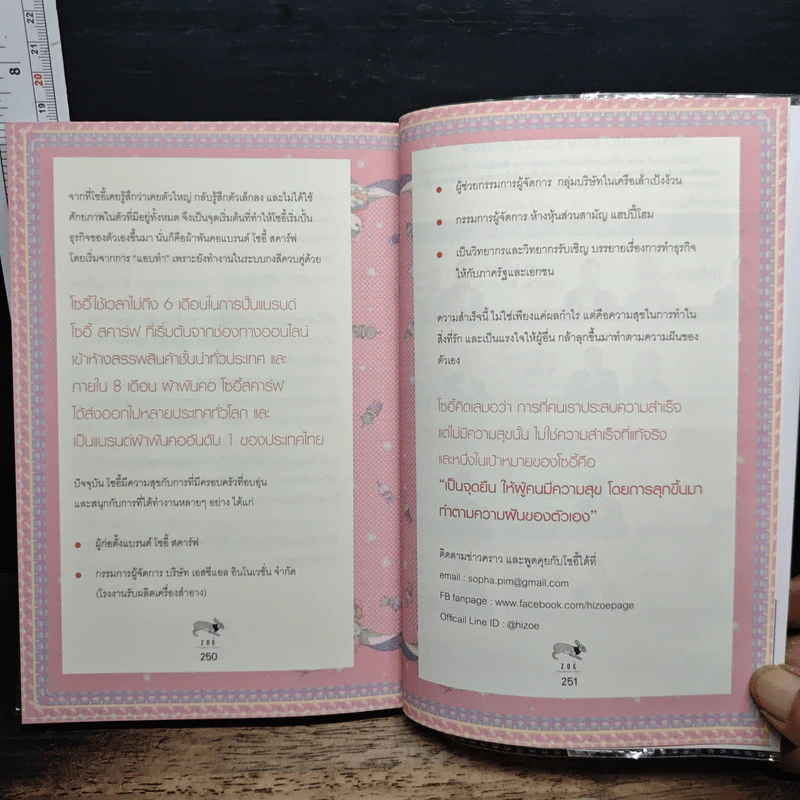 22
21
20
19
8
จากที่โซอี้เคยรู้สึกว่าเคยตัวใหญ่ กลับรู้สึกตัวเล็กลง และไม่ได้ใช้
ศักยภาพในตัวที่มีอยู่ทั้งหมด จึงเป็นจุดเริ่มต้นที่ทำให้โซอี้เริ่มปั้น
ธุรกิจของตัวเองขึ้นมา นั่นก็คือผ้าพันคอแบรนด์ โซอี้ สคาร์ฟ
โดยเริ่มจากการ "แอบทำ" เพราะยังทำงานในระบบกงสีควบคู่ด้วย
โซอี้ใช้เวลาไม่ถึง 6 เดือนในการปั้นแบรนด์
โซอี้ สคาร์ฟ ที่เริ่มต้นจากช่องทางออนไลน์
เข้าห้างสรรพสินค้าชั้นนำทั่วประเทศ และ
ภายใน 8 เดือน ผ้าพันคอ โซอี้สคาร์ฟ
ได้ส่งออกไปหลายประเทศทั่วโลก และ
เป็นแบรนด์ผ้าพันคออันดับ 1 ของประเทศไทย
ปัจจุบัน โซอี้มีความสุขกับการที่มีครอบครัวที่อบอุ่น
และสนุกกับการที่ได้ทำงานหลายๆ อย่าง ได้แก่
• ผู้ก่อตั้งแบรนด์ โซอี้ สคาร์ฟ
• กรรมการผู้จัดการ บริษัท เอสซีแอล อินโนเวชั่น จำกัด
(โรงงานรับผลิตเครื่องสำอาง)
ZOE
250
• ผู้ช่วยกรรมการผู้จัดการ กลุ่มบริษัทในเครือเล้าเป้งง้วน
• กรรมการผู้จัดการ ห้างหุ้นส่วนสามัญ แฮปปี้โฮม
• เป็นวิทยากรและวิทยากรรับเชิญ บรรยายเรื่องการทำธุรกิจ
ให้กับภาครัฐและเอกชน
ความสำเร็จนี้ ไม่ใช่เพียงแค่ผลกำไร แต่คือความสุขในการทำใน
สิ่งที่รัก และเป็นแรงใจให้ผู้อื่น กล้าลุกขึ้นมาทำตามความฝันของ
ตัวเอง
โซอี้คิดเสมอว่า การที่คนเราประสบความสำเร็จ
แต่ไม่มีความสุขนั้น ไม่ใช่ความสำเร็จที่แท้จริง
และหนึ่งในเป้าหมายของโซอี้คือ
"เป็นจุดยืน ให้ผู้คนมีความสุข โดยการลุกขึ้นมา
ทำตามความฝันของตัวเอง"
ติดตามข่าวคราว และพูดคุยกับโซอี้ได้ที่
email : sopha.pim@gmail.com
FB fanpage : www.facebook.com/hizoepage
Offcail Line ID : @hizoe
ZOE
251